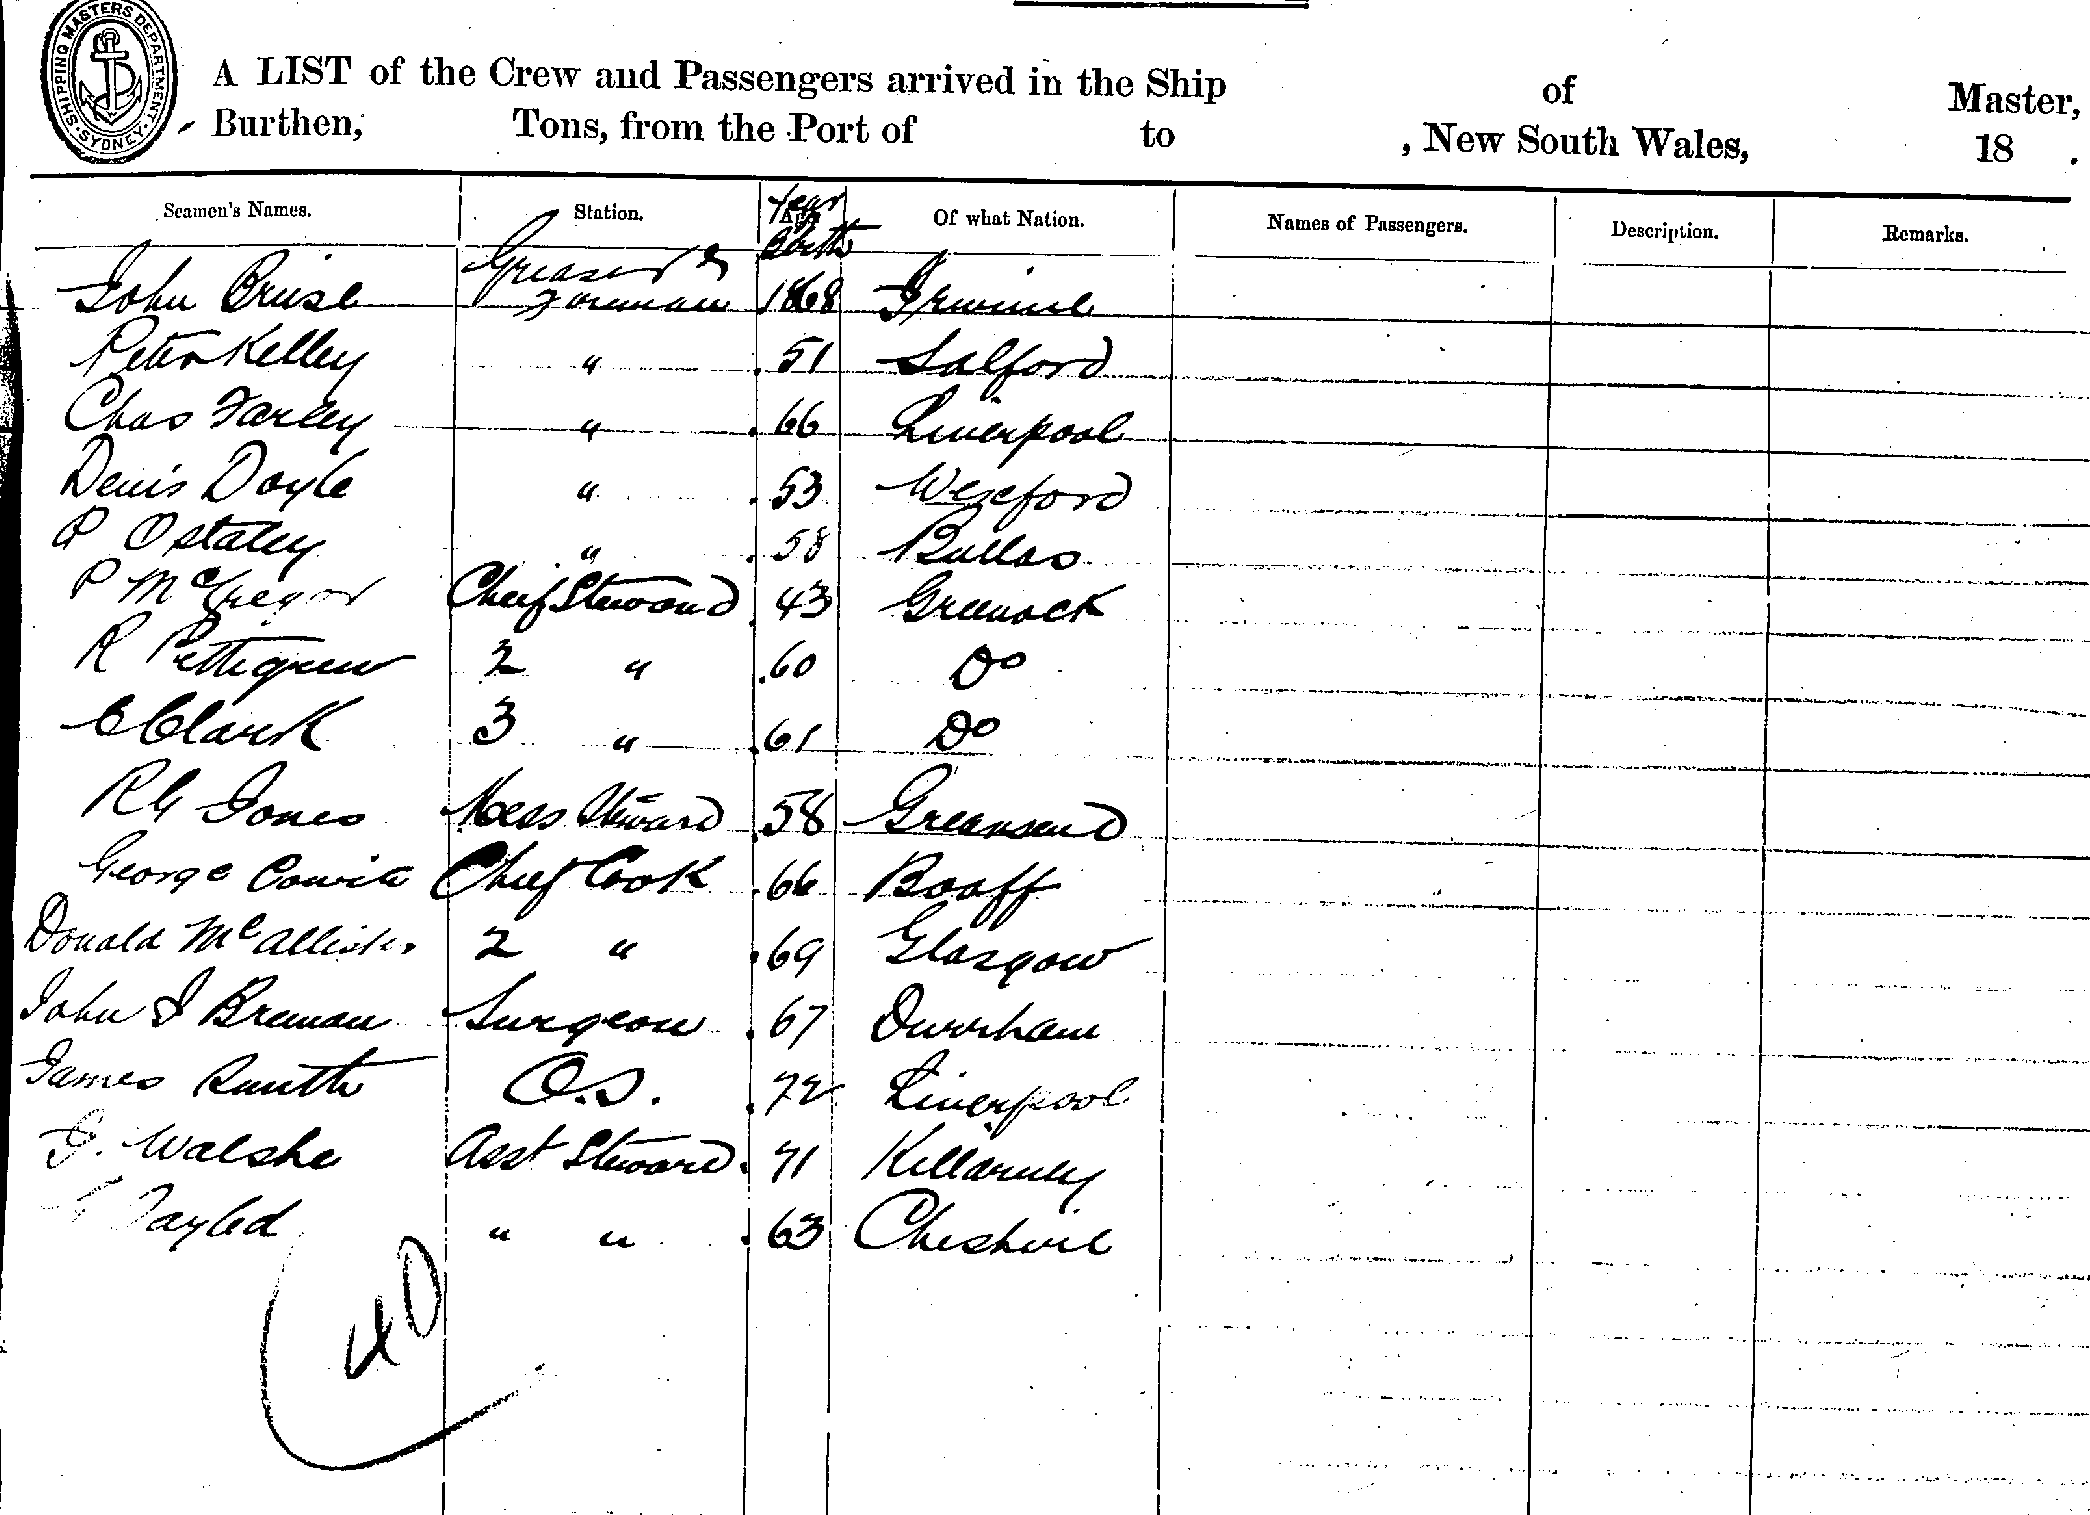 SHIPPING MASTERS DEPARTMENT. SYDNEY
A LIST of the Crew and Passengers arrived in the Ship of Master,
Burthen, Tons, from the Port of to , New South Wales, 18 .
Seamen's Names. Station. Year Birth Of what Nation. Names of Passengers. Description. Remarks.
Greaser &
John Bruse Foreman 1868 Irwine
Peter Kelley " 51 Salford
Chas Farley " 66 Liverpool
Denis Doyle " 53 Wexford
P Ostaley " 58 Ballas
P McGregor Cheif Steward 43 Greenock
R Pettigrew 2 " 60 Do
C Clark 3 " 61 Do
R G Jones Mess Steward 58 Greavsend
George Cowie Chief Cook 66 Banff
Donald McAllister 2 " 69 Glasgow
John J Brennan Surgeon 67 Durrham
James Smith O.S. 72 Liverpool
J. Walshe Asst Steward 71 Killarney
Tayled " " 63 Cheshire
40